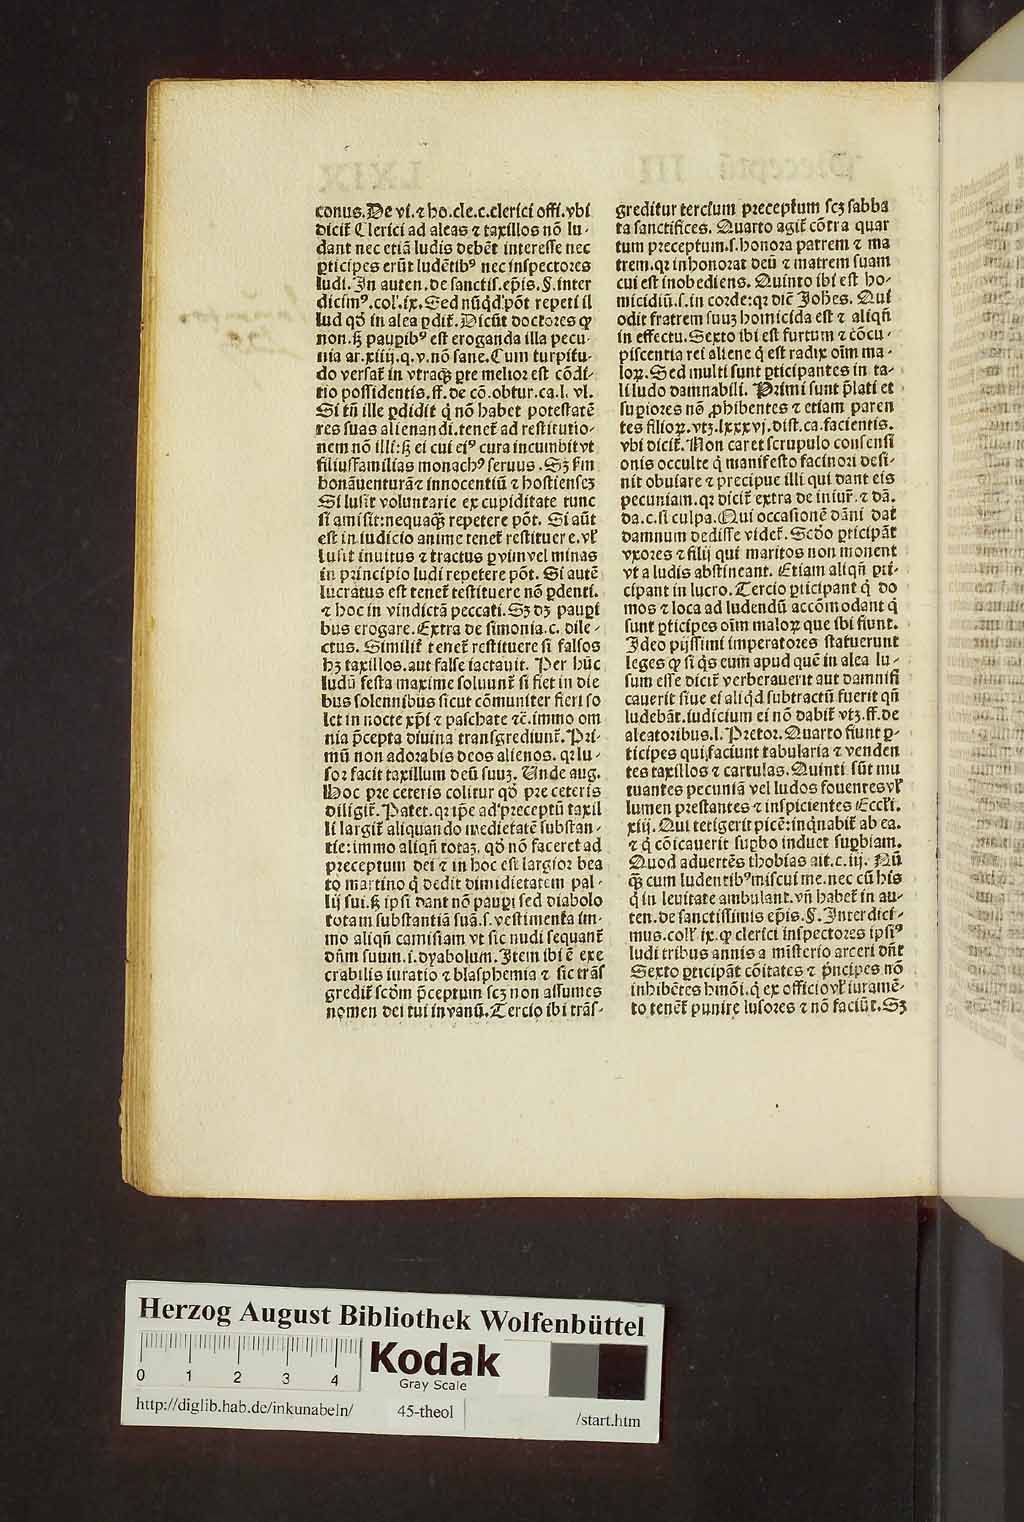 conus. De vi. ⁊ ho. cle. c. clerici offi. vbi
dicit᷑ Clerici ad aleas ⁊ taxillos nō lu-
dant nec etiā ludis debēt interesse nec
ꝑticipes erūt ludētibꝰ nec inspectores
ludi. In auten. de sanctis. ep̄is. §. inter
dicimꝰ. col'. ix. Sed nūqd' pōt repeti il
lud qd̄ in alea ꝑdit᷑. Dicūt doctores ꝙ
non. sꝫ pauꝑibꝰ est eroganda illa pecu
nia ar. xiiij. q. v. nō sane. Cum turpitu-
do versat᷑ in vtraqꝫ ꝑte melior est cōdi-
tio possidentis. ff. de cō. obtur. ca. l. vl.
Si tn̄ ille ꝑdidit q̄ nō habet potestatē
res suas alienandi. tenet᷑ ad restitutio-
nem nō illi: sꝫ ei cui eiꝰ cura incumbit vt
filiusfamilias monachꝰ seruus. Sꝫ s'm
bonāuenturā ⁊ innocentiū ⁊ hostienseꝫ
Si lusit voluntarie ex cupiditate tunc
si amisit: nequaqꝫ repetere pōt. Si aūt
est in iudicio anime tenet᷑ restituere. vl'
lusit inuitus ⁊ tractus ꝑ vim vel minas
in principio ludi repetere pōt. Si autē
lucratus est tenet᷑ restituere nō ꝑdenti.
⁊ hoc in vindictā peccati. Sꝫ dꝫ pauꝑi
bus erogare. Extra de simonia. c. dile-
ctus. Similit᷑ tenet᷑ restituere si falsos
hꝫ taxillos. aut false iactauit. Per hūc
ludū festa maxime soluunt᷑ si fiet in die
bus solennibus sicut cōmuniter fieri so
let in nocte xp̄i ⁊ paschate ⁊c̄. immo om
nia p̄cepta diuina transgrediunt᷑. Pri-
mū non adorabis deos alienos. qꝛ lu-
sor facit taxillum deū suuꝫ. Unde aug.
Hoc pre ceteris colitur qd̄ pre ceteris
diligit᷑. Patet. qꝛ ip̄e ad p̄ceptū taxil
li largit᷑ aliquando medietatē substan-
tie: immo aliqn̄ totaꝫ. qd̄ nō faceret ad
preceptum dei ⁊ in hoc est largior bea
to martino q̄ dedit dimidietatem pal-
lij sui. sꝫ ipsi dant nō pauꝑi sed diabolo
totam substantiā suā. s. vestimenta im-
mo aliqn̄ camisiam vt sic nudi sequant᷑
dn̄m suum. i. dyabolum. Item ibi ē exe
crabilis iuratio ⁊ blasphemia ⁊ sic trās
gredit᷑ scd̄m p̄ceptum scꝫ non assumes
nomen dei tui in vanū. Tercio ibi trās-
greditur tercium preceptum scꝫ sabba
ta sanctifices. Quarto agit᷑ cōtra quar
tum preceptum. s. honora patrem ⁊ ma
trem. qꝛ inhonorat deū ⁊ matrem suam
cui est inobediens. Quinto ibi est ho-
micidiū. s. in corde: qꝛ dic̄ Joh̄es. Qui
odit fratrem suuꝫ homicida est ⁊ aliqn̄
in effectu. Sexto ibi est furtum ⁊ cōcu-
piscentia rei aliene q̄ est radix oīm ma-
loꝝ. Sed multi sunt ꝑticipantes in ta-
li ludo damnabili. Primi sunt p̄lati et
suꝑiores nō ꝓhibentes ⁊ etiam paren
tes filioꝝ. vtꝫ. lxxxvj. dist. ca. facientis.
vbi dicit᷑. Non caret scrupulo consensi
onis occulte q̄ manifesto facinori desi-
nit obuiare ⁊ precipue illi qui dant eis
pecuniam. qꝛ dicit᷑ extra de iniur᷑. ⁊ dā.
da. c. si culpa. Qui occasionē dāni dat
damnum dedisse videt᷑. Scd̄o ꝑticipāt
vxores ⁊ filij qui maritos non monent
vt a ludis abstineant. Etiam aliqn̄ ꝑti-
cipant in lucro. Tercio ꝑticipant q̄ do
mos ⁊ loca ad ludendū accōmodant q̄
sunt ꝑticipes oīm maloꝝ que ibi fiunt.
Ideo pijssimi imperatores statuerunt
leges ꝙ si q̄s eum apud quē in alea lu-
sum esse dicit᷑ verberauerit aut damnifi
cauerit siue ei aliqd̄ subtractū fuerit qn̄
ludebāt. iudicium ei nō dabit᷑ vtꝫ. ff. de
aleatoribus. l. Pretor. Quarto fiunt ꝑ-
ticipes qui faciunt tabularia ⁊ venden
tes taxillos ⁊ cartulas. Quinti sūt mu
tuantes pecuniā vel ludos fouentes vl'
lumen prestantes ⁊ inspicientes Eccl'i.
xiij. Qui tetigerit picē: inqͥnabit᷑ ab ea.
⁊ q̄ cōicauerit suꝑbo induet suꝑbiam.
Quod aduertēs thobias ait. c. iij. Nū
qꝫ cum ludentibꝰ miscui me. nec cū his
q̄ in leuitate ambulant. vn̄ habet᷑ in au-
ten. de sanctissimis ep̄is. §. Interdici-
mus. coll' ix. ꝙ clerici inspectores ipsiꝰ
ludi tribus annis a misterio arceri dn̄t
Sexto ꝑticipāt cōitates ⁊ p̄ncipes nō
inhibētes hmōi. q̄ ex officio vl' iuramē-
to tenet᷑ punire lusores ⁊ nō faciūt. Sꝫ
Herzog August Bibliothek Wolfenbüttel
0 1 2 3 4
Kodak
Gray Scale
http://diglib.hab.de/inkunabeln/ 45-theol /start.htm